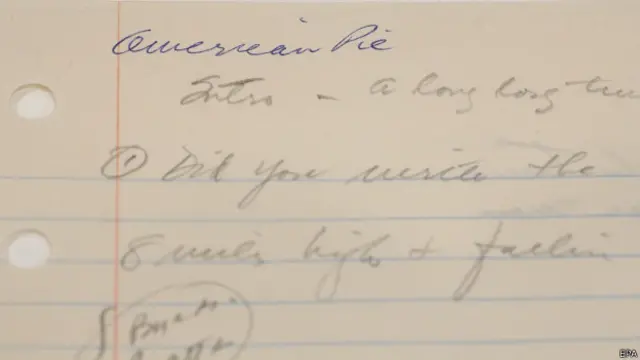 American Pie
Intro - A long long time
① Did you write the
8 miles high + fallin
EPA